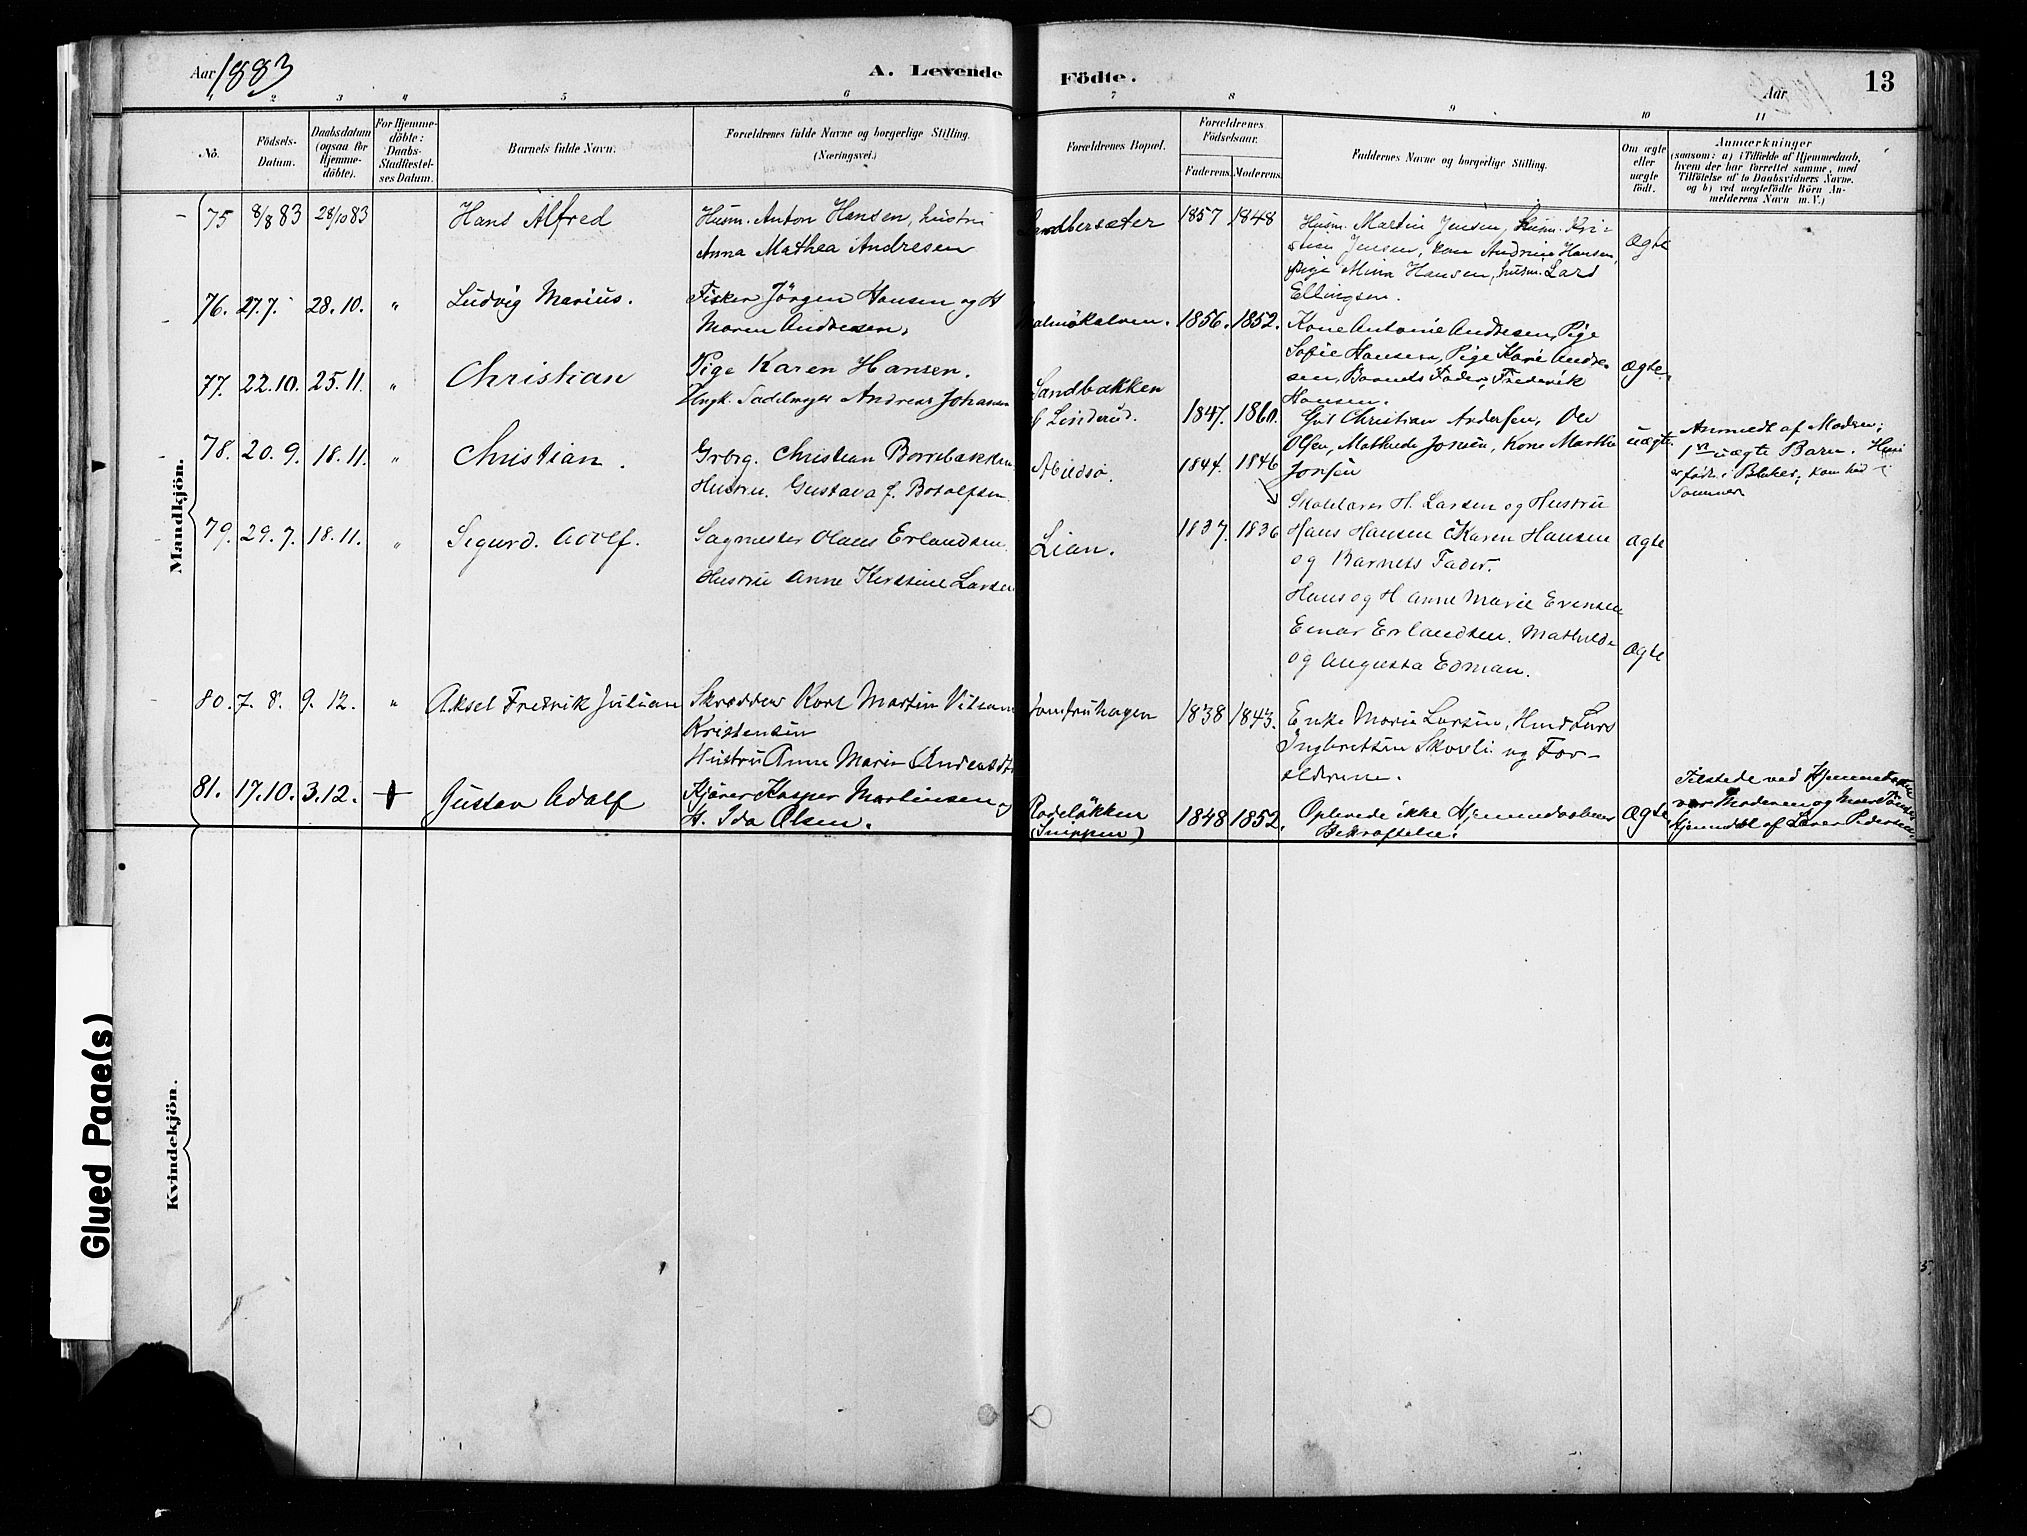 Aar 1883
A. Levende
Födte.
Aar
13
1 2 3 4 5 6 7 8 9 10 11
No.
Födsels-
Datum.
Daabsdatum
(ogsaa for
Hjemme-
döbte).
For Hjemme-
döbte:
Daabs-
Stadfæstel-
ses Datum.
Barnets fulde Navn.
Forældrenes fulde Navne og borgerlige Stilling.
(Næringsvei.)
Forældrenes Bopæl.
Forældrenes
Födselsaar.
Faderens. Moderens.
Faddernes Navne og borgerlige Stilling.
Om ægte
eller
uægte
födt.
Anmærkninger
(saasom: a) i Tilfælde af Hjemmedaab,
hvem der har forrettet samme, med
Tilföielse af to Daabsvidners Navne.
og b) ved uægtefödte Börn An-
melderens Navn m. V.)
Mandkjön.
75 8/8 83 28/10 83 Hans Alfred
Husm. Anton Hansen, hustru
Anna Mathea Andresen
Sandbersæter 1857 1848
Husm. Martin Jensen, Husm. Kri-
stian Jensen, kone Andrine Hansen,
Pige Mina Hansen, husm. Lars
Ellingsen.
Ægte
76. 27.7. 28.10. " Ludvig Marius.
Fisker Jörgen Hansen og H
Maren Andresen,
Malmökalven. 1856. 1852.
Kone Antonie Andresen, Pige
Sofie Hansen, Pige Andre-
sen, Barnets Fader, Frederik
Hansen.
Ægte.
77. 22.10. 25.11. " Christian
Pige Karen Hansen.
Ungk. Andreas Johansen
Sandbakken
Linderud. 1847. 1860.
Christian Andersen, Ole
Olsen, Mathilde Jonsen, Kone Marthe
Jonsen
uægte
Anmeldt af Modren;
1ste uægte Barn. Hun
er föd i Blaker; kom hid i
Sommer
78. 20.9. 18.11. " Christian.
Grbrg. Christian Borrebækken
Hustru. Gustava f. Botolfsen
Abildsö. 1844. 1846
Skolelærer H. Larsen og Hustru
Hans Hansen Karen Hansen
og Barnets Fader.
ægte
79. 29.7. 18.11. " Sigurd. Adolf.
Sagmester Olaus Erlandsen.
Hustru Anne Kirstine Larsen
Lian. 1837. 1836
Hans og H Anne Marie Evensen
Einar Erlandsen. Mathilde
og Augusta Edman.
ægte
80. 7.8. 9.12. " Aksel Fredrik Julian
Skrædder Karl Martin
Kristensen
Hustru Anne Marie
Jomfruhagen 1838 1843.
Enke Marie Larsen, Lars
Ingbretsen og For-
ældrene.
81. 17.10. 3.12. Gustav Adolf
Kjörer Kasper Martinsen og
H. Ida Olsen.
Rodelökken 1848 1852.
Oplevede ikke Hjemmedaabens
Bekræftelse.
Ægte
Tilstede ved Hjemmedaaben
var Moderen og
Hjemdöbt af Lærer Pedersen
Kvindekjön.
Glued Page(s)